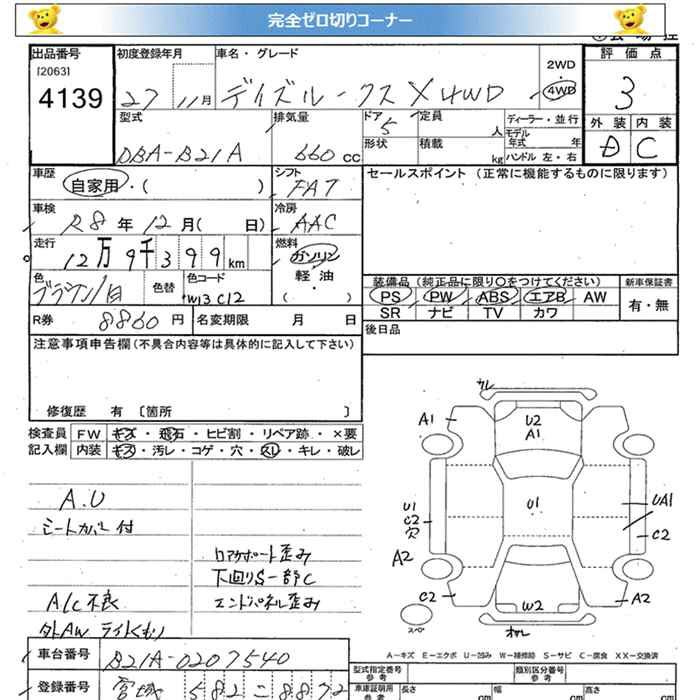 完全ゼロ切りコーナー
出品番号
[2063]
4139
初度登録年月
27 11月
車名・グレード
デイズルークス X 4WD
2WD
・
4WD
評価点
3
外装 内装
D C
型式
DBA-B21A
排気量
660 cc
ドア
5
形状
定員
人
積載
kg
ディーラー・並行
モデル
年式 年
ハンドル 左・右
車歴
自家用・( )
シフト
FAT
車検
R8年 12月( 日)
冷房
AAC
走行
12万9千399km
燃料
ガソリン
軽油
( )
色
ブラウン/白
色替
色コード
W13 C12
R券 8860円
名変期限 月 日
セールスポイント (正常に機能するものに限ります)
装備品(純正品に限り〇をつけてください)
PS PW ABS エアB AW
SR ナビ TV カワ
新車保証書
有・無
後日品
注意事項申告欄(不具合内容等は具体的に記入して下さい)
修復歴 有 〔箇所 〕
検査員 FW キズ・飛石・ヒビ割・リペア跡・×要
記入欄 内装 キズ・汚レ・コゲ・穴・スレ・キレ・破レ
A.U
シートカバー付
A/C不良
外AW ライトくもり
ロアサポート歪み
下回りS一部C
エンドパネル歪み
ワレ
A1
U2
A1
U1
U1
C2
穴
UA1
C2
A2
C2
W2
A2
スペア
A-キズ E-エクボ U-凹み W-補修跡 S-サビ C-腐食 XX-交換済
車台番号 B21A-0207540
登録番号 宮城 582 こ 8872
型式指定番号
参考
類別区分番号
参考
車庫証明用
参考
長さ
cm
幅
cm
高さ
cm